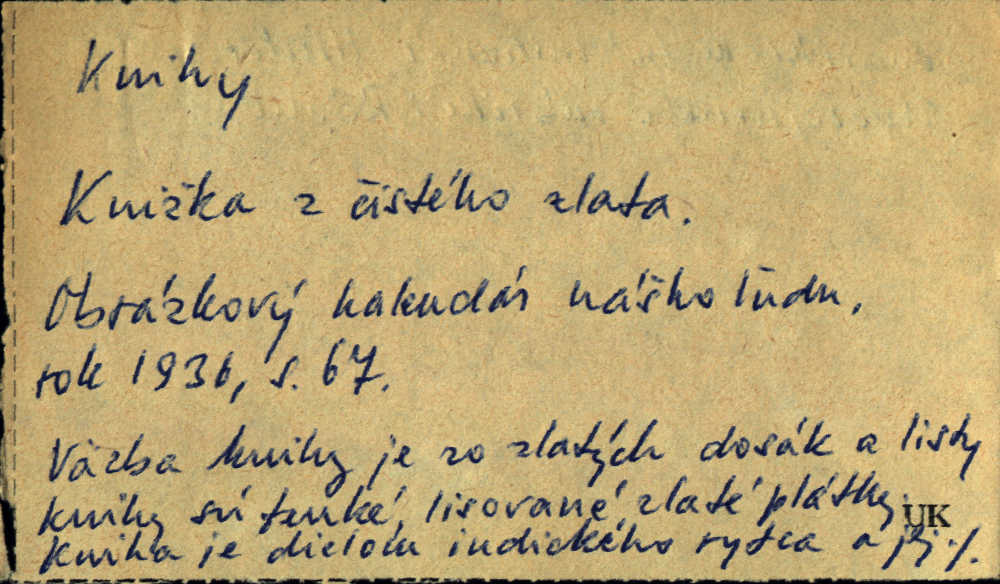 Knihy
Knižka z čistého zlata.
Obrázkový kalendár nášho ľudu,
rok 1936, s. 67.
Väzba knihy je zo zlatých dosák a listy
knihy sú tenké, lisované zlaté plátky.
UK
Kniha je dielom indického rytca a jej ./.